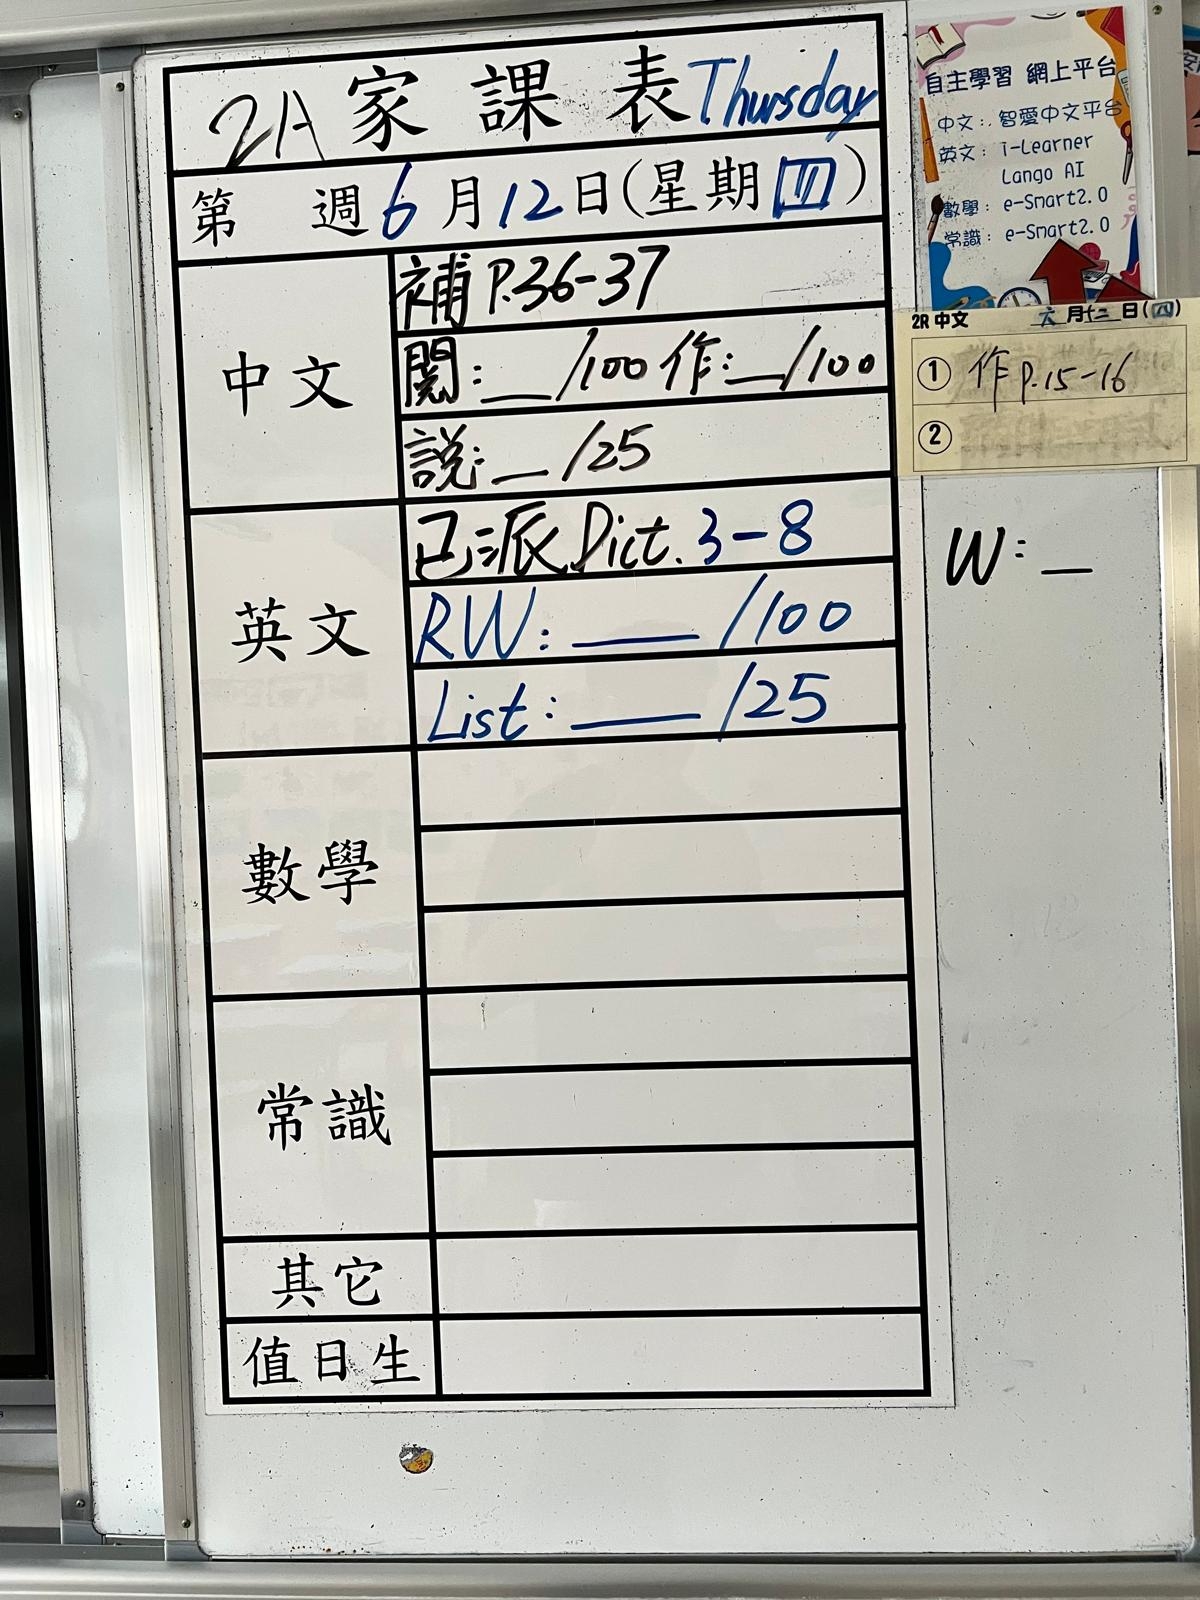 2A 家課表 Thursday
第 週 6月12日(星期四)
中文
補 P.36-37
閱: __ /100 作: __ /100
說: __ /25
英文
已派 Dict. 3-8
RW: ____ /100
List: ____ /25
數學
常識
其它
值日生
自主學習 網上平台
中文: 智愛中文平台
英文: i-Learner
Lango AI
數學: e-Smart2.0
常識: e-Smart2.0
2R 中文 六月十二日(四)
① 作 P.15-16
②
W: __